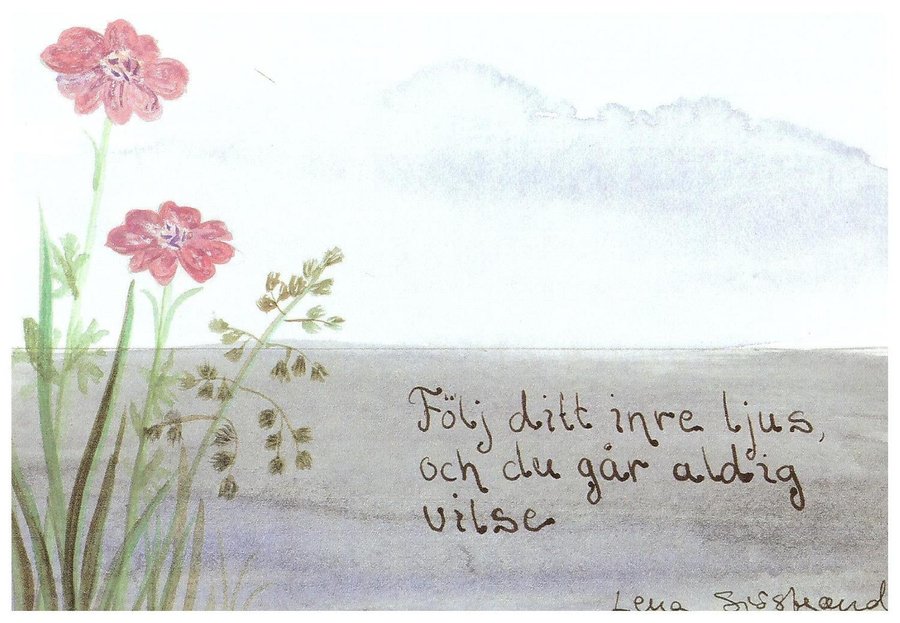 Följ ditt inre ljus,
och du går aldig
vilse
Lena